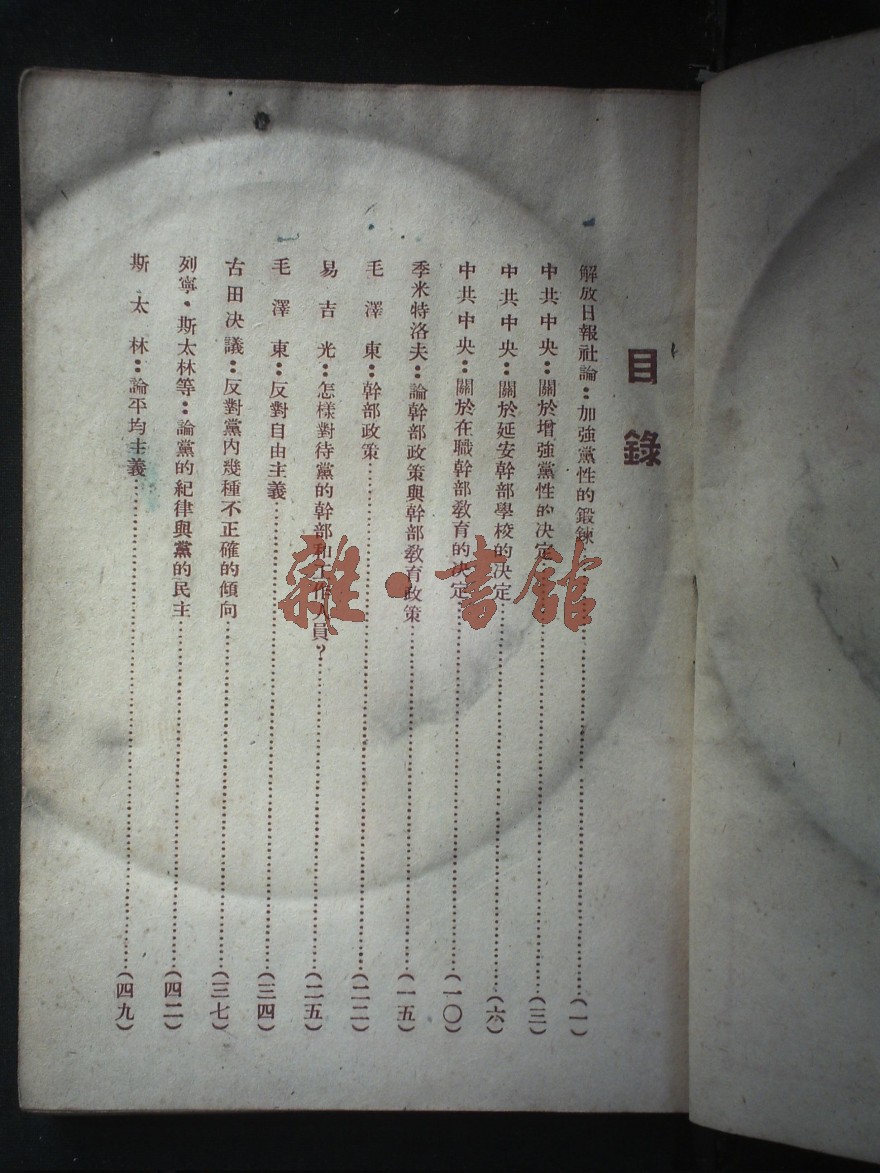 目錄
解放日報社論：加強黨性的鍛鍊……(一)
中共中央：關於增強黨性的决定……(三)
中共中央：關於延安幹部學校的决定……(六)
中共中央：關於在職幹部教育的决定……(一〇)
季米特洛夫：論幹部政策與幹部教育政策……(一五)
毛澤東：幹部政策……(二二)
易吉光：怎樣對待黨的幹部和工作人員？……(二五)
毛澤東：反對自由主義……(三四)
古田决議：反對黨內幾種不正確的傾向……(三七)
列寧·斯太林等：論黨的紀律與黨的民主……(四二)
斯太林：論平均主義……(四九)
雜·書館